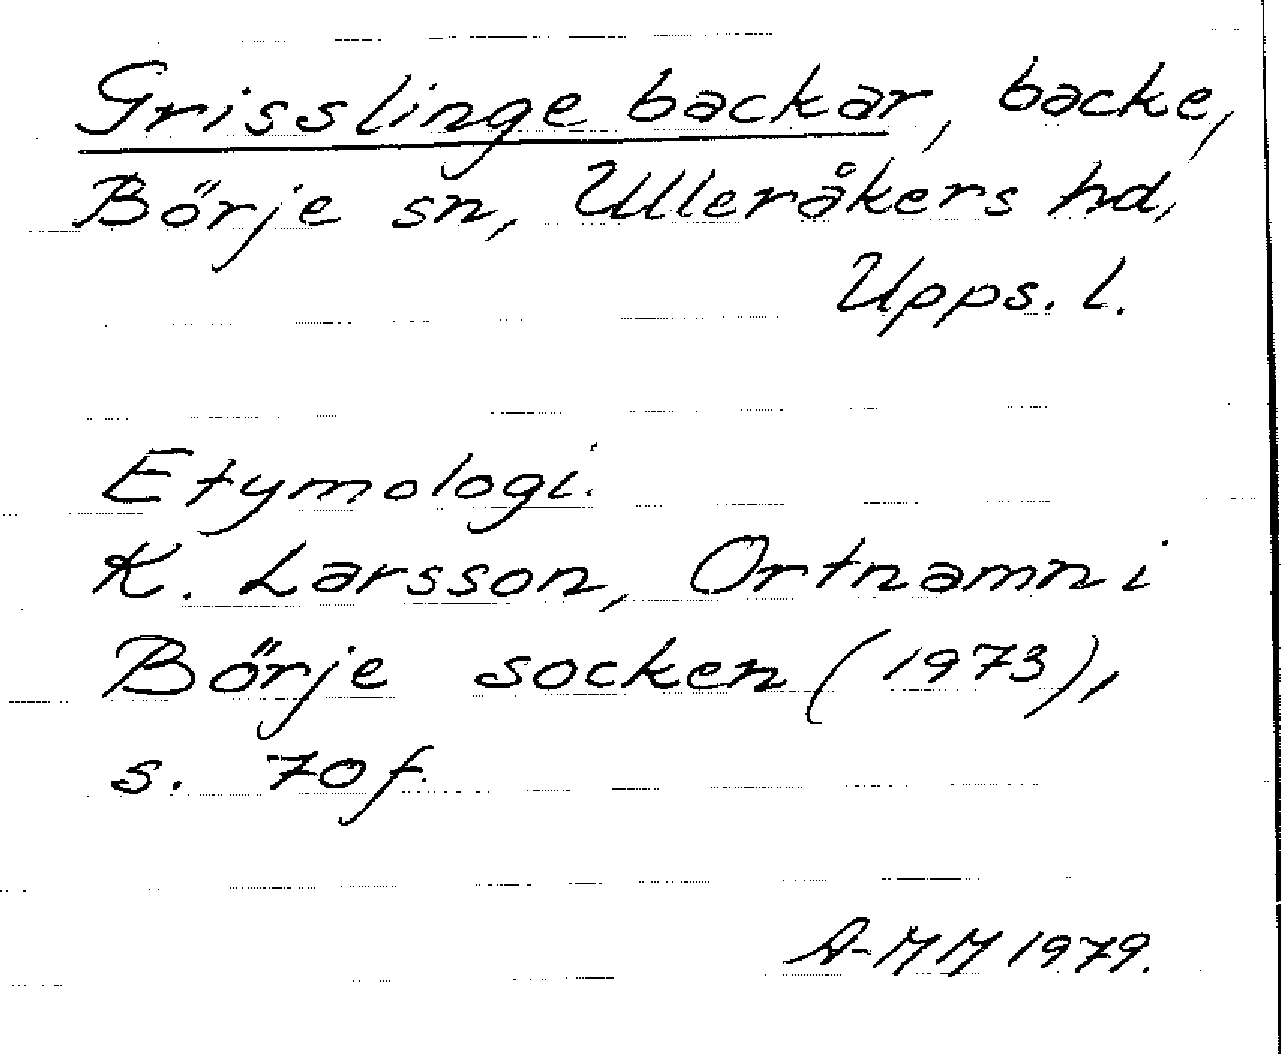 Grisslinge backar, backe,
Börje sn, Ulleråkers hd,
Upps. l.
Etymologi.
K. Larsson, Ortnamn i
Börje socken (1973),
s. 70 f.
A-MM 1979.